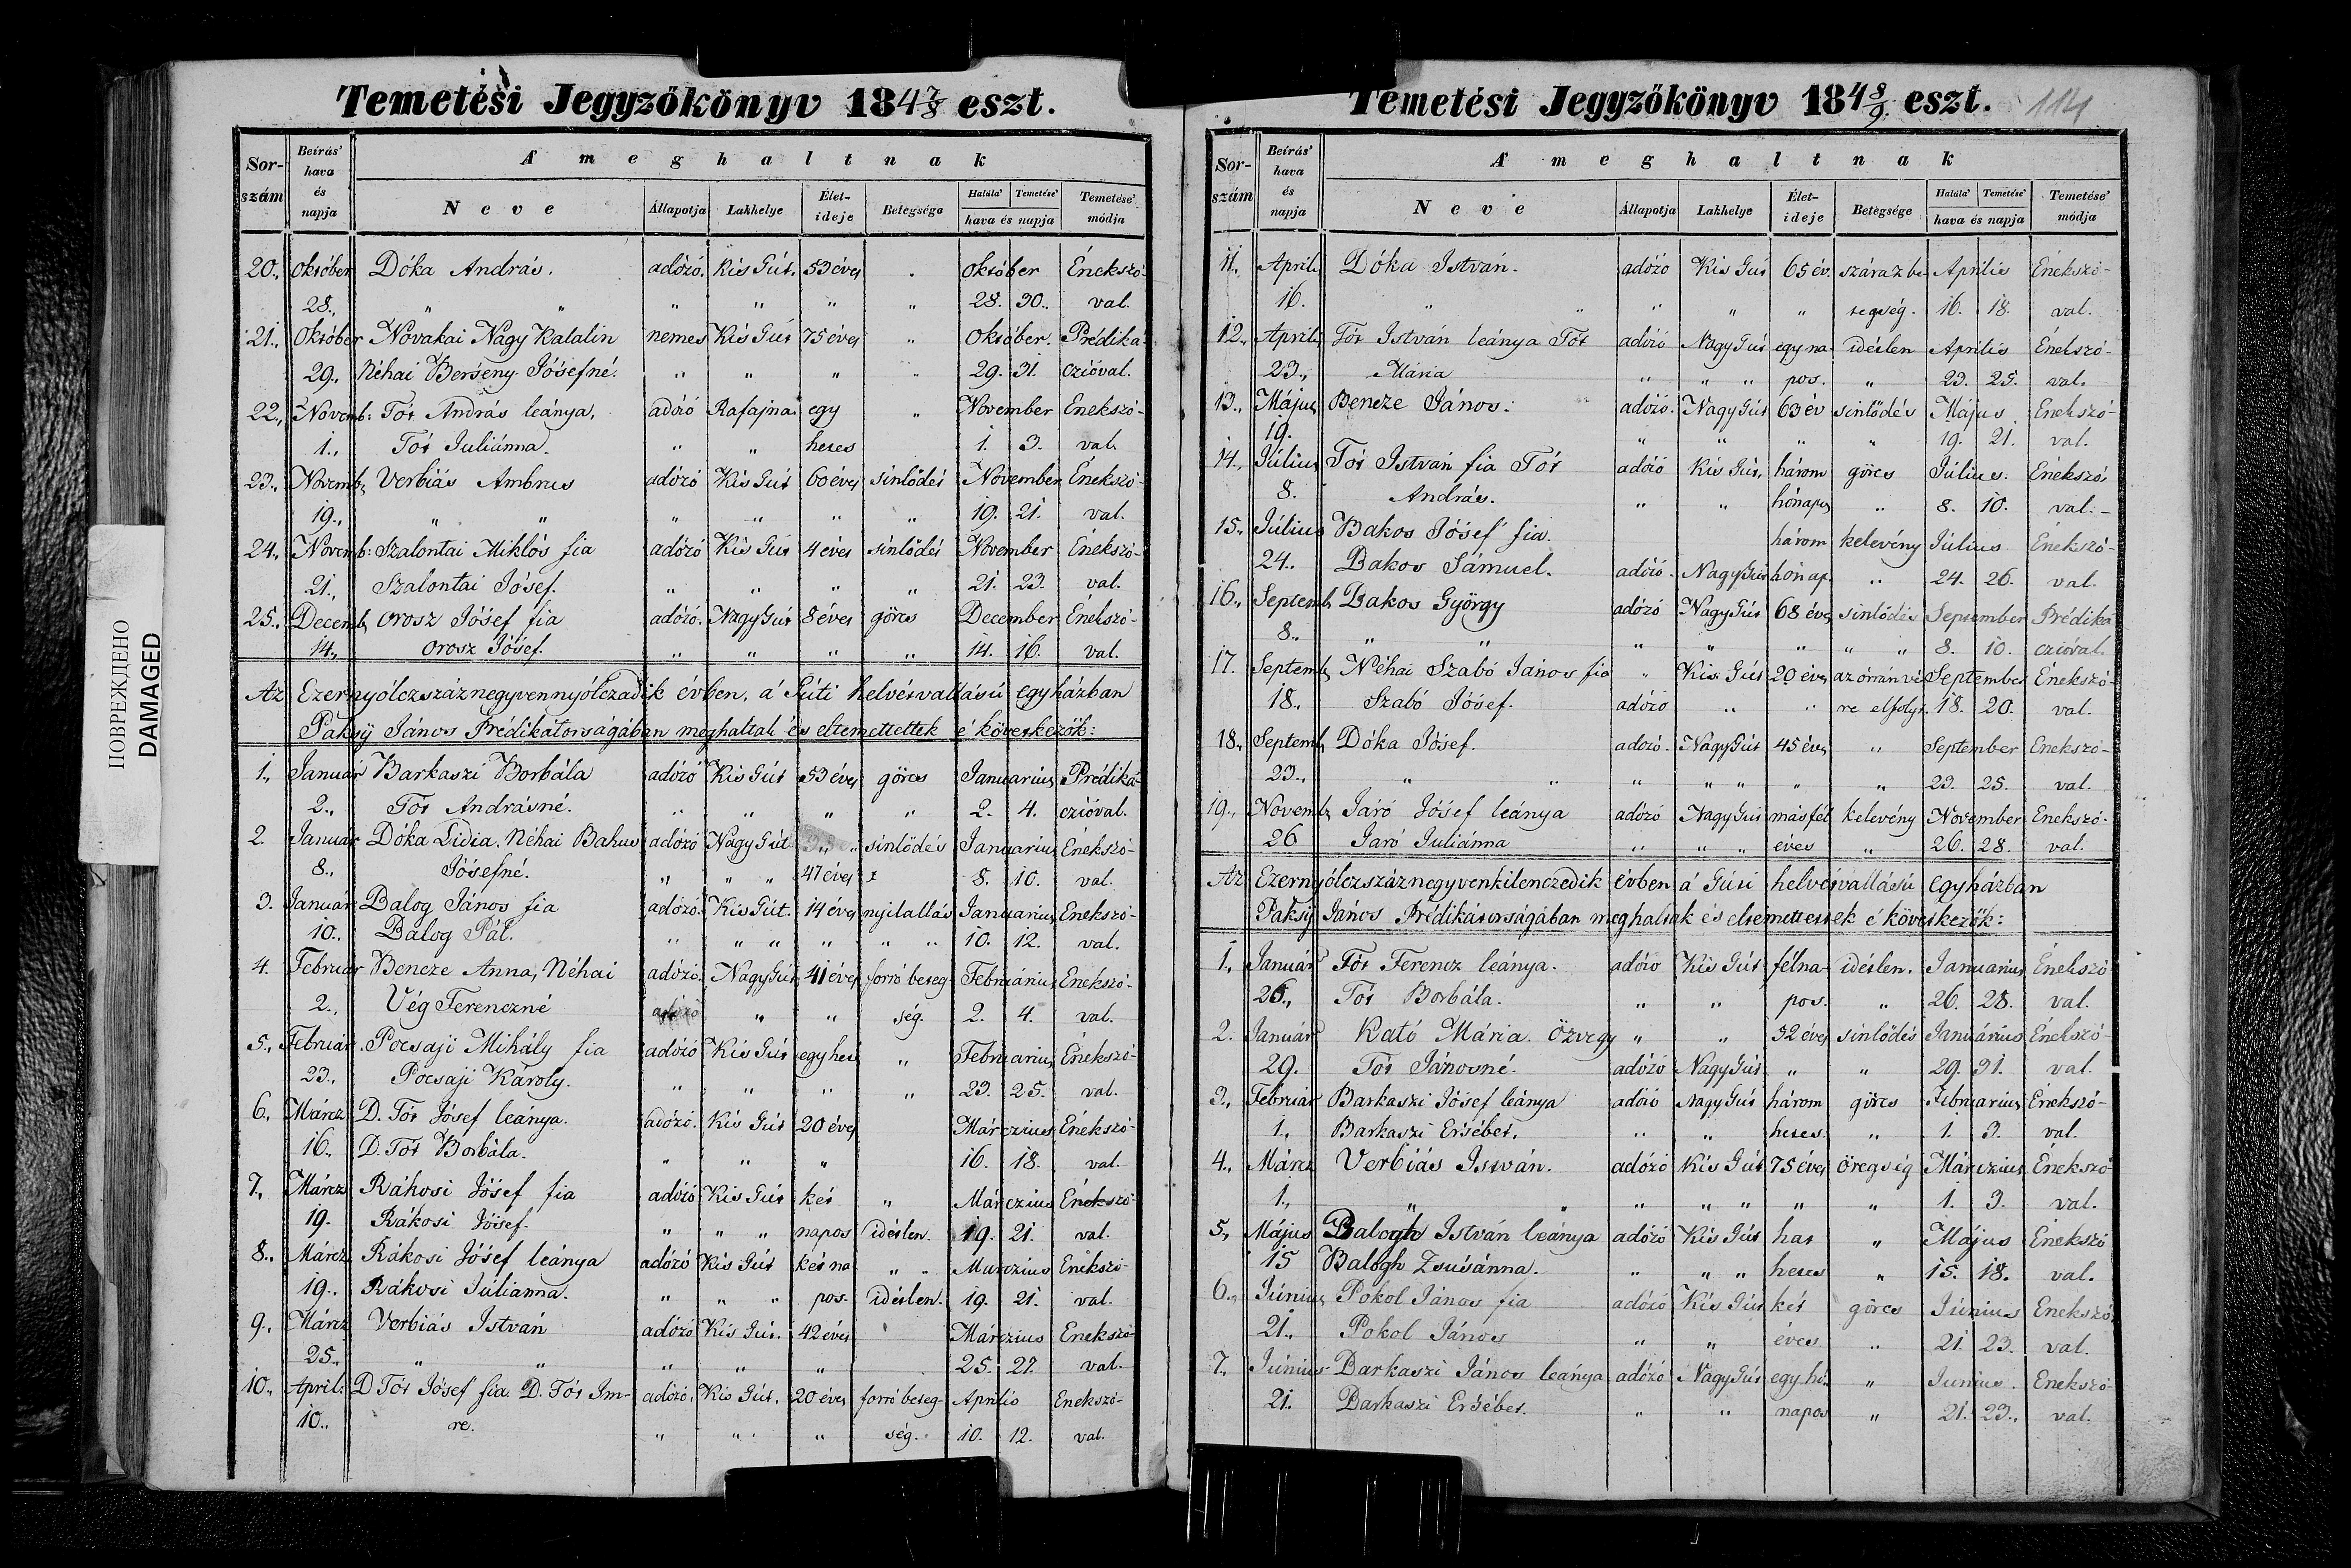 Temetési Jegyzőkönyv 184 7/8 eszt.
Sor-szám Beírás' hava és napja A' meghaltnak
Neve Állapotja Lakhelye Élet-ideje Betegsége Halála' Temetése' hava és napja Temetése' módja
20., Október Dóka András. adózó. Kis Gút. 53 éves . Október Énekszó-
28., " " " " " " 28. 30.. val.
21., Október Novakai Nagy Katalin nemes Kis Gút 75 éves " Október. Prédiká-
29., Néhai Berseny Jósefné. " " " " 29. 31. czióval.
22., Novemb: Tót András leánya, adózó Rafajna egy " November Énekszó-
1., Tót Juliánna. " " hetes 1. 3. val.
23., Novemb, Verbiás Ambrus adózó Kis Gút 60 éves sinlődés November Énekszó-
19., " " " " " " 19. 21. val.
24., Novemb: Szalontai Miklós fia adózó Kis Gút 4 éves sinlődés November Énekszó-
21., Szalontai Jósef. " " " " 21. 23. val.
25., Decemb, Orosz Jósef fia adózó. Nagy Gút 8 éves görcs December Énekszó-
14., Orosz Jósef. " " " " 14. 16. val.
Az Ezernyólczszáznegyvennyólczadik évben, á Gúti helvétvallású egyházban
Paksÿ János Prédikátorságában meghaltak és eltemettettek é következők:
1., Január Barkaszi Borbála adózó Kis Gút 53 éves görcs Januarius Prédiká-
2., Tót Andrásné. " " " " 2. 4. czióval.
2. Január Dóka Lidia, Néhai Bakus adózó Nagy Gút sinlődés Januarius Énekszó-
8., Jósefné. " " " 47 éves 8. 10. val.
3. Január Balog János fia adózó. Kis Gút. 14 éves nyilallás Januarius Énekszó-
10.. Balog Pál. " " " " " " 10. 12. val.
4. Február Bencze Anna, Néhai adózó. Nagy Gút 41 éves forró beteg- Februárius Énekszó-
2., Vég Ferenczné " " ség. 2. 4. val.
5., Február. Pocsaji Mihály fia adózó Kis Gút egy hetes " Februarius Énekszó-
23., Pocsaji Károly. " " " " 23. 25. val.
6., Márcz D. Tót Jósef leánya. adózó. Kis Gút 20 éves Márczius Énekszó-
16., D. Tót Borbála. " " " 16. 18. val.
7., Márcz Rákosi Jósef fia adózó Kis Gút két " Márczius Énekszó-
19. Rákosi Jósef. " " " napos idétlen. 19. 21. val.
8., Márcz Rákosi Jósef leánya adózó Kis Gút két na " " Marczius Énekszó-
19.. Rákosi Julianna. " " " pos. idétlen. 19. 21. val.
9., Márcz Verbiás István adózó Kis Gút. 42 éves Márczius Énekszó-
25., " " " " " 25. 27. val.
10., April: D Tót Jósef fia D. Tót Im- adózó. Kis Gút. 20 éves forró beteg- Aprilis Énekszó-
10.. re. " " " ség. 10. 12. val.
ПОВРЕЖДЕНО
DAMAGED
Temetési Jegyzőkönyv 184 8/9. eszt. 114
Sor-szám Beírás' hava és napja A' meghaltnak
Neve Állapotja Lakhelye Élet-ideje Betegsége Halála' Temetése' hava és napja Temetése' módja
11., April, Dóka István. adózó Kis Gút 65 év. száraz be- Aprilis Énekszó-
16. " " " " " tegség. 16. 18. val.
12., April, Tót István leánya Tót adózó Nagy Gút egy na- idétlen Aprilis Énekszó-
23., Mária " " " pos. " 23. 25. val.
13., Május, Bencze János. adózó. Nagy Gút 63 év sinlődés Május Énekszó-
19. " " " " 19. 21. val.
14., Július Tót István fia Tót adózó Kis Gút, három görcs Július. Énekszó,
8. András. " " hónapos " 8. 10. val. -
15., Július Bakos Jósef fia. három kelevény Július Énekszó-
24.. Bakos Sámuel. adózó. Nagy Gút hónap. " 24. 26. val.
16., Septemb, Bakos György adózó Nagy Gút 68 éves sinlődés September Prédiká
8., " " " " " " " 8. 10. czióval.
17. Septemb, Néhai Szabó János fia " Kis Gút 20 éves az órrán vé- September Énekszó-
18., Szabó Jósef. adózó " " re elfolyt. 18. 20. val.
18., Septemb, Dóka Jósef. adózó. Nagy Gút 45 éves " September Énekszó-
23., " " " " " " " 23. 25. val.
19., Novemb, Jaró Jósef leánya adózó Nagy Gút másfél kelevény November Énekszó-
26 Jaró Juliánna " " " éves " 26. 28. val.
Az Ezernyólczszáznegyvenkilenczedik évben á Gúti helvétvallású egyházban
Paksÿ János Prédikátorságában meghaltak és eltemettettek é következők:
1., Január Tót Ferencz leánya. adózó Kis Gút félna- idétlen. Januarius Énekszó
26., Tót Borbála. " " pos. " 26. 28. val.
2. Január Kató Mária. özvegy " " 32 éves sinlődés Januárius Énekszó-
29. Tót Jánosné. adózó Nagy Gút " " 29. 31. val.
3., Február Barkaszi Jósef leánya adózó Nagy Gút három görcs Februarius Énekszó-
1., Barkaszi Ersébet. " " hetes. " 1. 3. val.
4., Márcz Verbiás István. adózó Kis Gút 75 éves öregség Márczius Énekszó
1., " " " " " " " 1. 3. val.
5., Május Balogh István leánya adózó Kis Gút hat " Május Énekszó
15 Balogh Zsusánna. " " " hetes " 15. 18. val.
6., Június, Pokol János fia adózó Kis Gút két görcs Június Énekszó,
21., Pokol János " " éves " 21. 23. val.
7., Június Barkaszi János leánya adózó Nagy Gút egy hó.. " Junius. Énekszó-
21. Barkaszi Ersébet. " " napos " 21. 23., val.